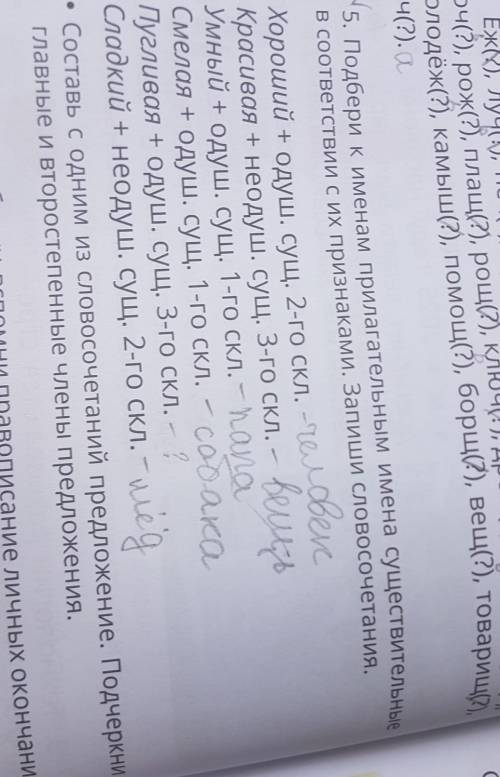 Ёж(?), луч(?),
рож(?), плащ(?), рощ(?), ключ(?),
олодёж(?), камыш(?), помощ(?), борщ(?), вещ(?), товарищ(?),
ч(?). а
5. Подбери к именам прилагательным имена существительные
в соответствии с их признаками. Запиши словосочетания.
Хороший + одуш. сущ. 2-го скл. - человек
Красивая + неодуш. сущ. 3-го скл. - вещь
Умный + одуш. сущ. 1-го скл. - папа
Смелая + одуш. сущ. 1-го скл. - собака
Пугливая + одуш. сущ. 3-го скл. - ?
Сладкий + неодуш. сущ. 2-го скл. - мёд
• Составь с одним из словосочетаний предложение. Подчеркни
главные и второстепенные члены предложения.
вспомни правописание личных окончани